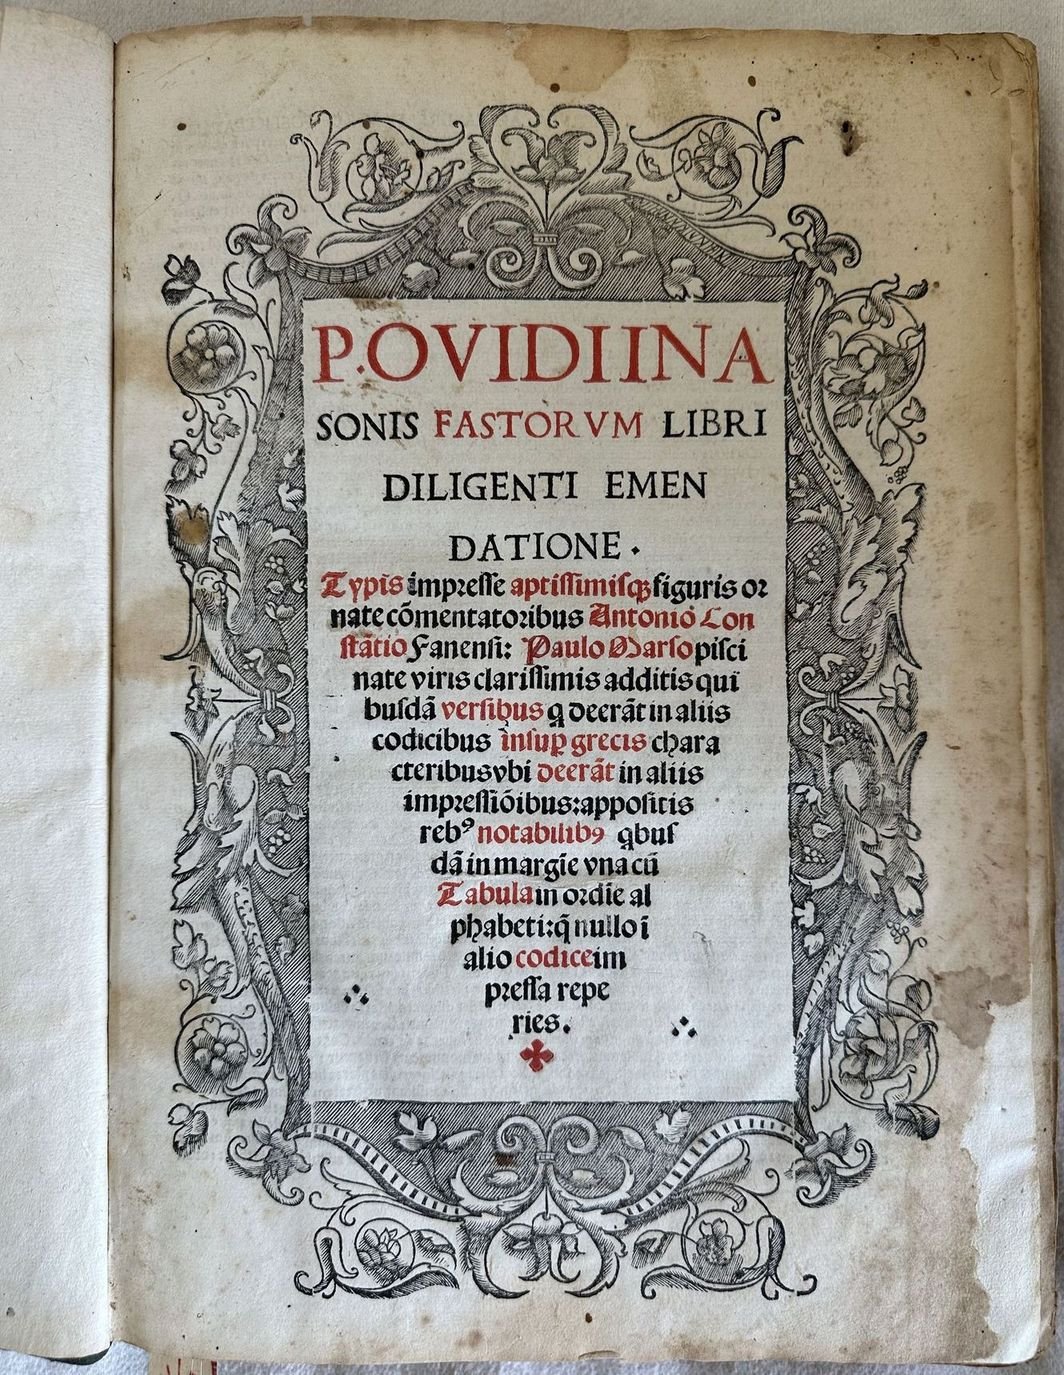 P.OVIDII NA
SONIS FASTORVM LIBRI
DILIGENTI EMEN
DATIONE.
Typis impresse aptissimisqꝫ figuris or
nate cōmentatoribus Antonio Con
stātio Fanensi: Paulo Marso pisci
nate viris clarissimis additis qui
busdā versibus q deerāt in aliis
codicibus insuꝑ grecis chara
cteribus vbi deerāt in aliis
impressiōibus: appositis
rebꝰ notabilibꝰ qbus
dā in margīe vna cū
Tabula in ordīe al
phabeti: q̄ nullo ī
alio codice im
pressa repe
ries.